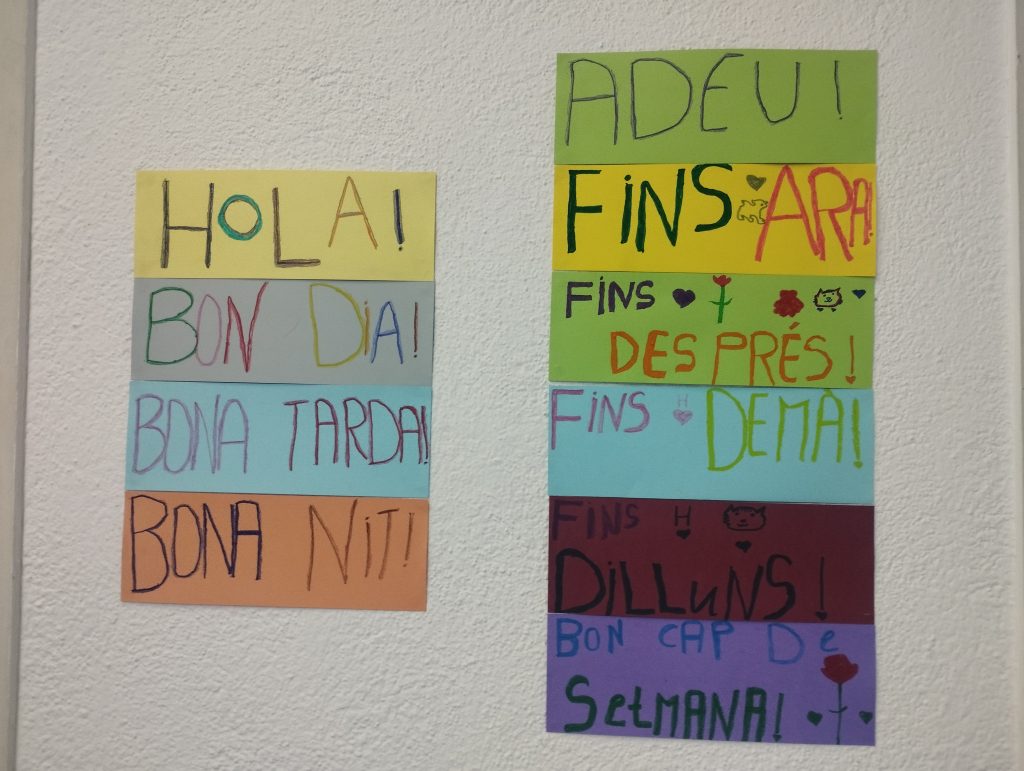 HOLA!
BON DiA!
BONA TARDA!
BONA NiT!
ADEU!
FiNS ARA!
FiNS
DESPRÉS!
FiNS H DEMÀ!
FiNS H
DiLLuNS!
BON CAP De
SetMANA!